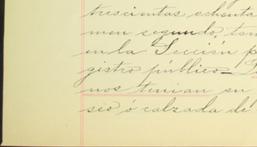 trescientas ochenta
men segundo, tom
en la Sección p
gistro público
nos tenian en
seo ó calzada de